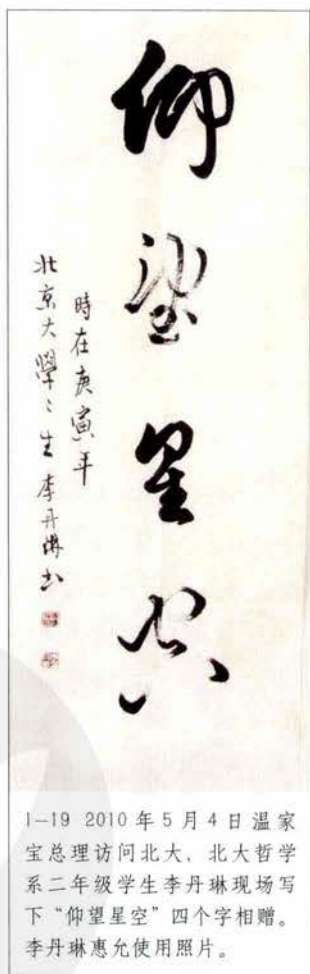 仰望星空
時在庚寅年
北京大學〻生李丹琳书
1-19 2010年5月4日温家
宝总理访问北大，北大哲学
系二年级学生李丹琳现场写
下“仰望星空”四个字相赠。
李丹琳惠允使用照片。